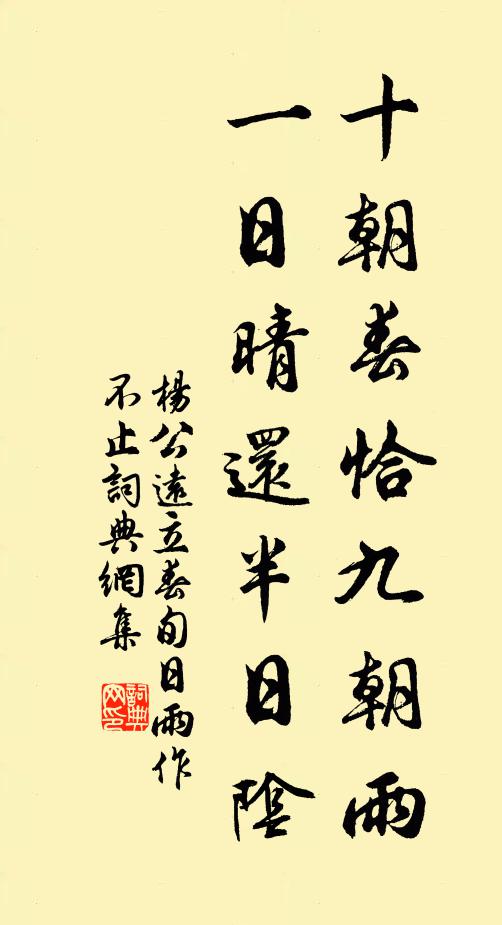 十朝春恰九朝雨
一日晴還半日陰
楊公遠立春旬日雨作
不止詞典網集
詞典
网印